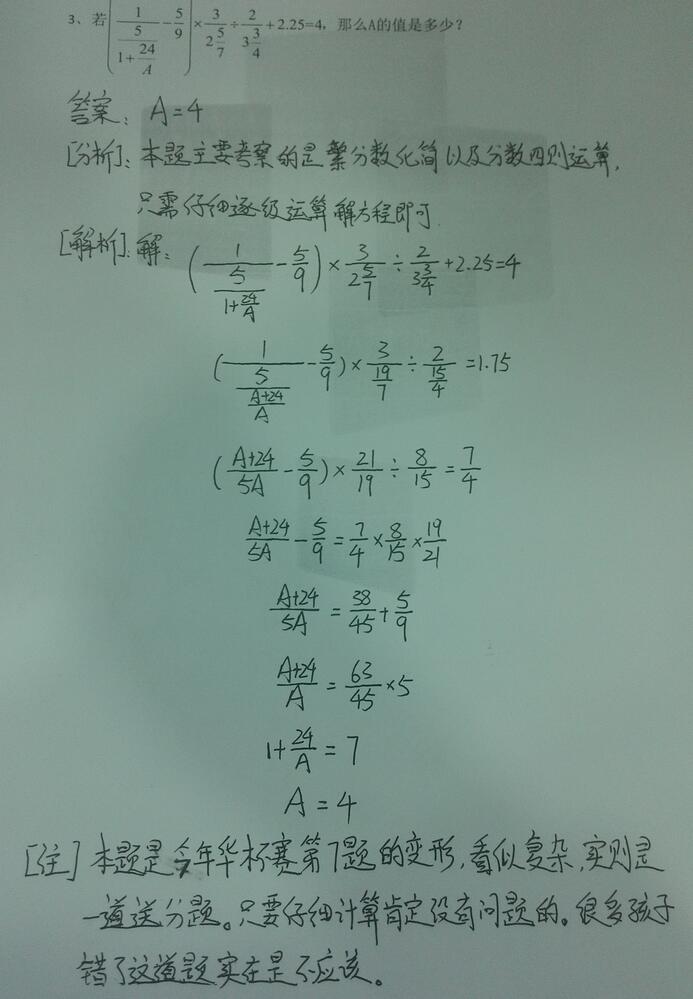 3、若(1/(5/(1+24/A))-5/9)×3/(2 5/7)÷2/(3 3/4)+2.25=4，那么A的值是多少？
答案：A=4
[分析]：本题主要考察的是繁分数化简以及分数四则运算，
只需仔细逐级运算解方程即可.
[解析]：解：(1/(5/(1+24/A))-5/9)×3/(2 5/7)÷2/(3 3/4)+2.25=4
(1/(5/((A+24)/A))-5/9)×3/(19/7)÷2/(15/4)=1.75
((A+24)/5A-5/9)×21/19÷8/15=7/4
(A+24)/5A-5/9=7/4×8/15×19/21
(A+24)/5A=38/45+5/9
(A+24)/A=63/45×5
1+24/A=7
A=4
[注]本题是今年华杯赛第7题的变形，看似复杂，实则是
一道送分题。只要仔细计算肯定没有问题的。很多孩子
错了这道题，实在是不应该。